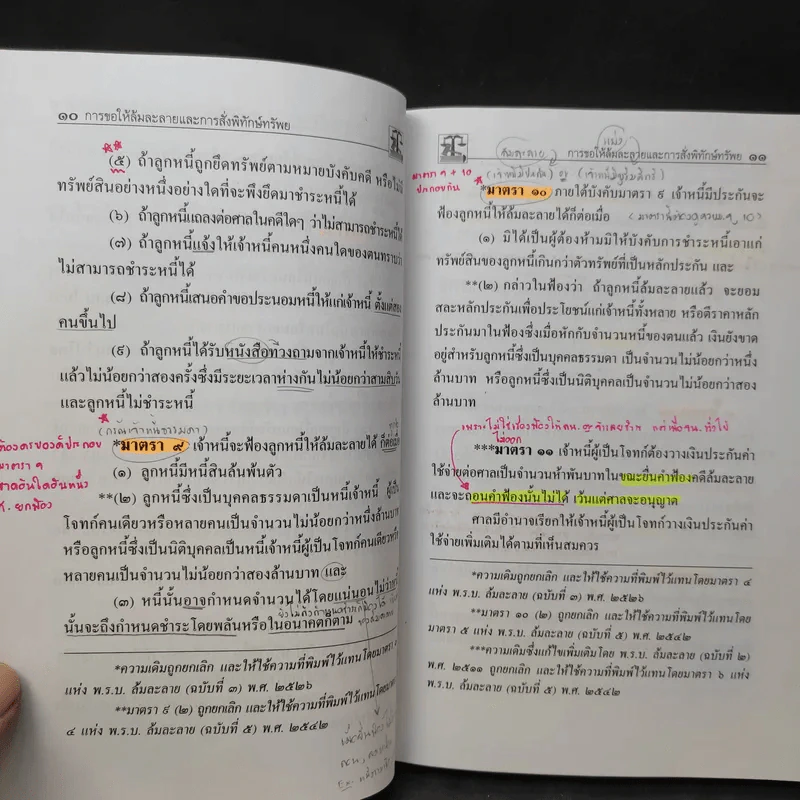 ๑๐ การขอให้ล้มละลายและการสั่งพิทักษ์ทรัพย์
(๕) ถ้าลูกหนี้ถูกยึดทรัพย์ตามหมายบังคับคดี หรือไม่มี
ทรัพย์สินอย่างหนึ่งอย่างใดที่จะพึงยึดมาชำระหนี้ได้
(๖) ถ้าลูกหนี้แถลงต่อศาลในคดีใดๆ ว่าไม่สามารถชำระหนี้ได้
(๗) ถ้าลูกหนี้แจ้งให้เจ้าหนี้คนหนึ่งคนใดของตนทราบว่า
ไม่สามารถชำระหนี้ได้
(๘) ถ้าลูกหนี้เสนอคำขอประนอมหนี้ให้แก่เจ้าหนี้ ตั้งแต่สอง
คนขึ้นไป
(๙) ถ้าลูกหนี้ได้รับหนังสือทวงถามจากเจ้าหนี้ให้ชำระหนี้
แล้วไม่น้อยกว่าสองครั้งซึ่งมีระยะเวลาห่างกันไม่น้อยกว่าสามสิบวัน
และลูกหนี้ไม่ชำระหนี้
(กรณีเจ้าหนี้ธรรมดา)
*มาตรา ๙ เจ้าหนี้จะฟ้องลูกหนี้ให้ล้มละลายได้ ก็ต่อเมื่อ
ต้องครบองค์ประกอบ
มาตรา ๙
ขาดอันใดอันหนึ่ง
ศ. ยกฟ้อง
(๑) ลูกหนี้มีหนี้สินล้นพ้นตัว
**(๒) ลูกหนี้ซึ่งเป็นบุคคลธรรมดาเป็นหนี้เจ้าหนี้ ผู้เป็น
โจทก์คนเดียวหรือหลายคนเป็นจำนวนไม่น้อยกว่าหนึ่งล้านบาท
หรือลูกหนี้ซึ่งเป็นนิติบุคคลเป็นหนี้เจ้าหนี้ผู้เป็นโจทก์คนเดียวหรือ
หลายคนเป็นจำนวนไม่น้อยกว่าสองล้านบาท และ
(๓) หนี้นั้นอาจกำหนดจำนวนได้โดยแน่นอนไม่ว่าหนี้
นั้นจะถึงกำหนดชำระโดยพลันหรือในอนาคตก็ตาม
*ความเดิมถูกยกเลิก และให้ใช้ความที่พิมพ์ไว้แทนโดยมาตรา ๓
แห่ง พ.ร.บ. ล้มละลาย (ฉบับที่ ๓) พ.ศ. ๒๕๒๖
**มาตรา ๙ (๒) ถูกยกเลิก และให้ใช้ความที่พิมพ์ไว้แทนโดยมาตรา
๔ แห่ง พ.ร.บ. ล้มละลาย (ฉบับที่ ๕) พ.ศ. ๒๕๔๒
การขอให้ล้มละลายและการสั่งพิทักษ์ทรัพย์ ๑๑
มาตรา ๙ + ๑๐
ประกอบกัน
*มาตรา ๑๐ ภายใต้บังคับมาตรา ๙ เจ้าหนี้มีประกันจะ
ฟ้องลูกหนี้ให้ล้มละลายได้ก็ต่อเมื่อ
(๑) มิได้เป็นผู้ต้องห้ามมิให้บังคับการชำระหนี้เอาแก่
ทรัพย์สินของลูกหนี้เกินกว่าตัวทรัพย์ที่เป็นหลักประกัน และ
**(๒) กล่าวในฟ้องว่า ถ้าลูกหนี้ล้มละลายแล้ว จะยอม
สละหลักประกันเพื่อประโยชน์แก่เจ้าหนี้ทั้งหลาย หรือตีราคาหลัก
ประกันมาในฟ้องซึ่งเมื่อหักกับจำนวนหนี้ของตนแล้ว เงินยังขาด
อยู่สำหรับลูกหนี้ซึ่งเป็นบุคคลธรรมดา เป็นจำนวนไม่น้อยกว่าหนึ่ง
ล้านบาท หรือลูกหนี้ซึ่งเป็นนิติบุคคลเป็นจำนวนไม่น้อยกว่าสอง
ล้านบาท
***มาตรา ๑๑ เจ้าหนี้ผู้เป็นโจทก์ต้องวางเงินประกันค่า
ใช้จ่ายต่อศาลเป็นจำนวนห้าพันบาทในขณะยื่นคำฟ้องคดีล้มละลาย
และจะถอนคำฟ้องนั้นไม่ได้ เว้นแต่ศาลจะอนุญาต
ศาลมีอำนาจเรียกให้เจ้าหนี้ผู้เป็นโจทก์วางเงินประกันค่า
ใช้จ่ายเพิ่มเติมได้ตามที่เห็นสมควร
*ความเดิมถูกยกเลิก และให้ใช้ความที่พิมพ์ไว้แทนโดยมาตรา ๔
แห่ง พ.ร.บ. ล้มละลาย (ฉบับที่ ๓) พ.ศ. ๒๕๒๖
**มาตรา ๑๐ (๒) ถูกยกเลิก และให้ใช้ความที่พิมพ์ไว้แทนโดย
มาตรา ๕ แห่ง พ.ร.บ. ล้มละลาย (ฉบับที่ ๕) พ.ศ. ๒๕๔๒
***ความเดิมซึ่งแก้ไขเพิ่มเติมโดย พ.ร.บ. ล้มละลาย (ฉบับที่ ๒)
พ.ศ. ๒๕๑๑ ถูกยกเลิก และให้ใช้ความที่พิมพ์ไว้แทนโดยมาตรา ๖ แห่ง
พ.ร.บ. ล้มละลาย (ฉบับที่ ๕) พ.ศ. ๒๕๔๒